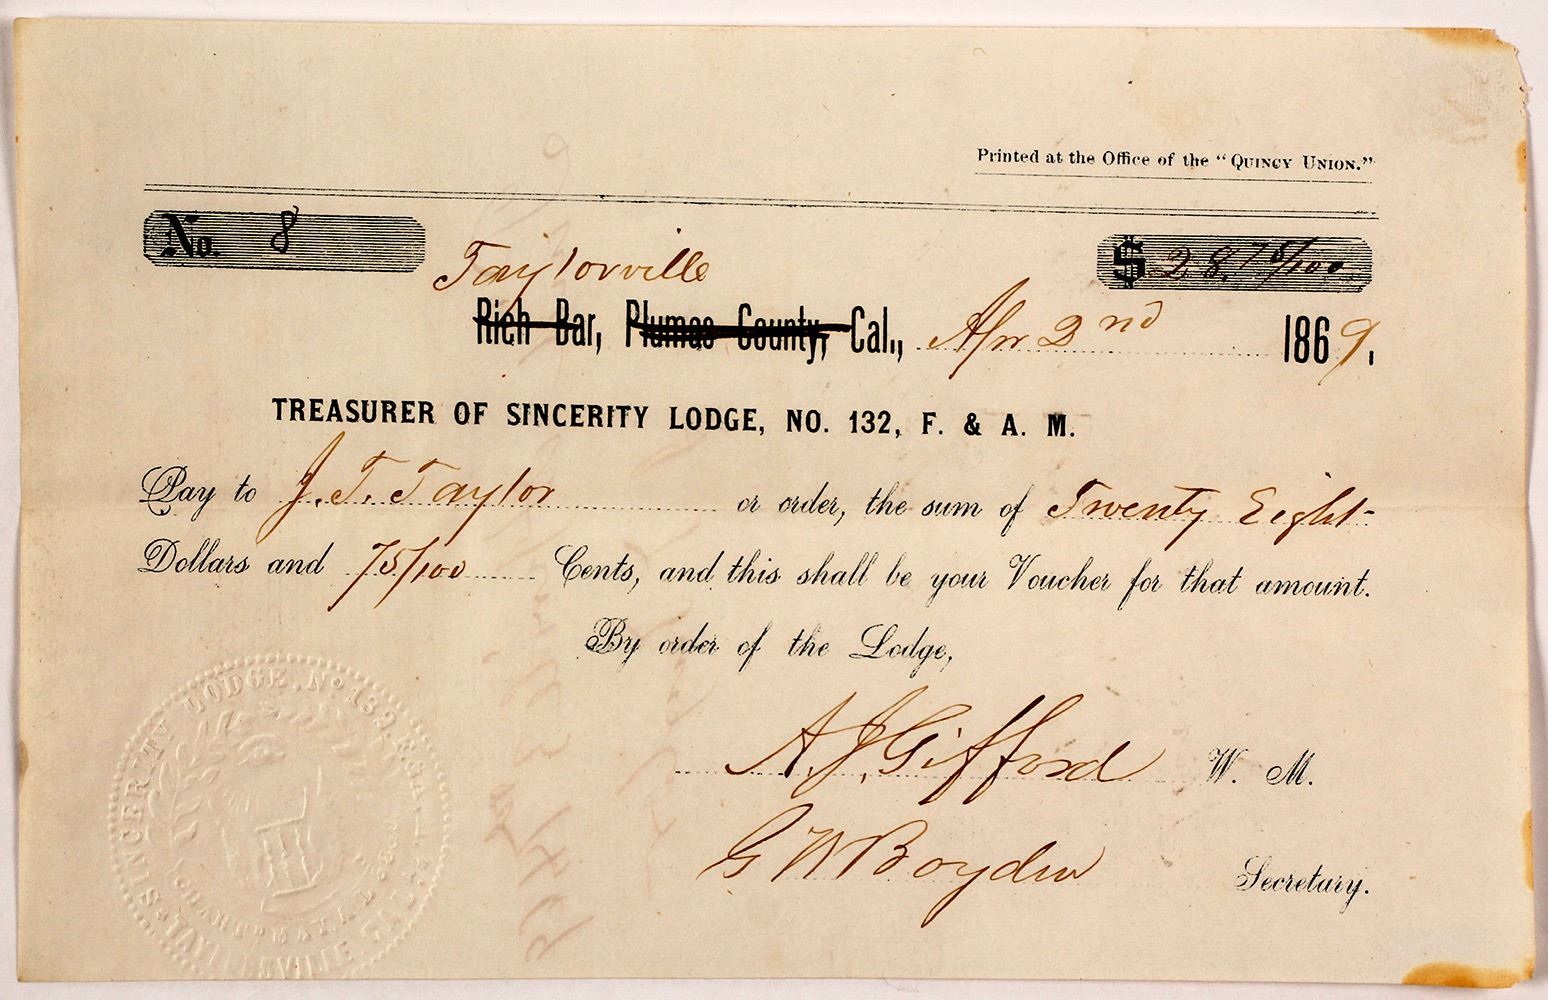 Printed at the Office of the "QUINCY UNION."
No. 8
$ 28.75/100
Taylorville
Rich Bar, Plumas County, Cal., Apr 2nd 1869.
TREASURER OF SINCERITY LODGE, NO. 132, F. & A. M.
Pay to J. T. Taylor or order, the sum of Twenty Eight
Dollars and 75/100 Cents, and this shall be your Voucher for that amount.
By order of the Lodge,
A. J. Gifford W. M.
G W Boyden Secretary.
SINCERITY LODGE. No 132. F. & A. M.
TAYLORSVILLE CAL.